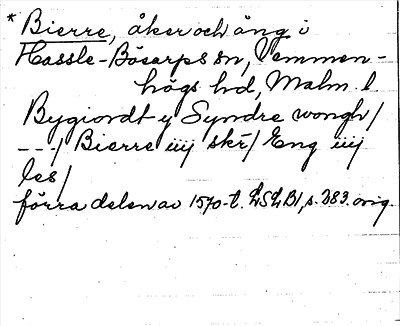 * Bierre, åker och äng i
Hassle-Bösarps sn, Vemmen-
högs hd, Malm. l.
Bygiordt y Syndre wongh/
---/ Bierre iiij skr/ Eng iiij
les/
förra delen av 1570-t. LSLB1, s. 283. orig.